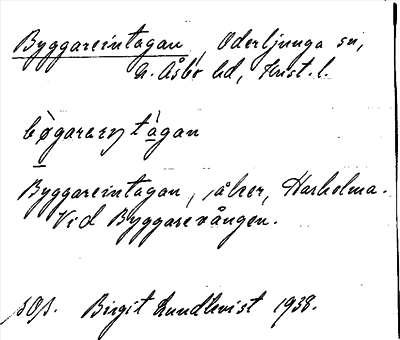 Byggareintagan, Oderljunga sn,
N. Åsbo hd, Krist. l.
bø̀garæɳ tàgan
Byggareintagan, åker, Harholma.
Vid Byggarevången.
Birgit Lundkvist 1938.